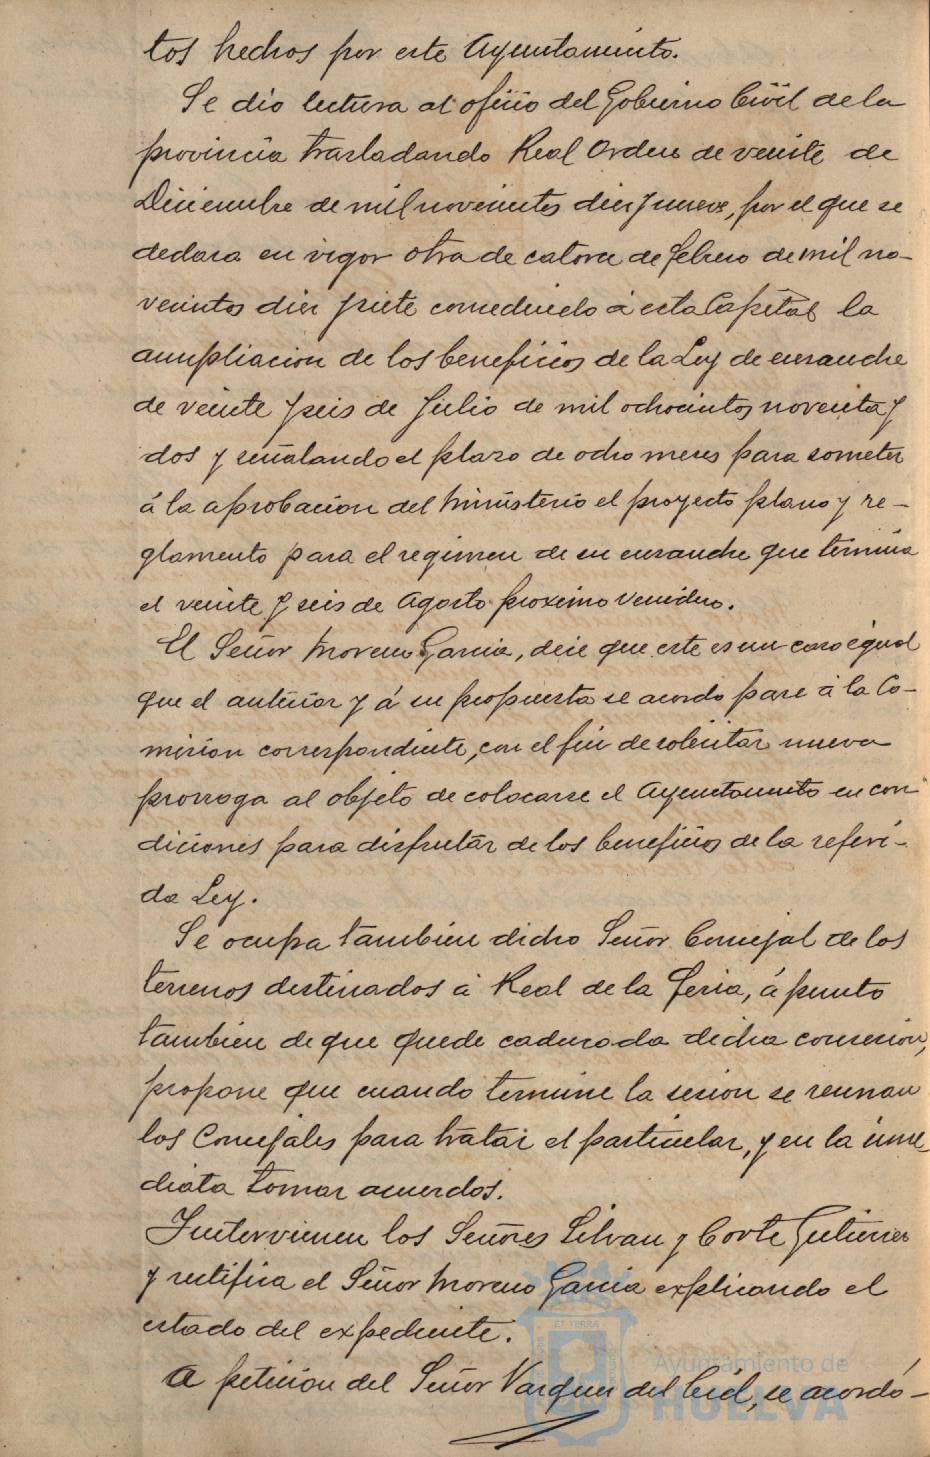 tos hechos por este Ayuntamiento.
Se dio lectura al oficio del Gobierno Civil de la
provincia trasladando Real Orden de veinte de
Diciembre de mil novecientos diez y nueve, por el que se
declara en vigor otra de catorce de febrero de mil no-
vecientos diez y siete concediendo á esta Capital la
ampliacion de los beneficios de la Ley de ensanche
de veinte y seis de Julio de mil ochocientos noventa y
dos y señalando el plazo de ocho meses para someter
á la aprobacion del Ministerio el proyecto plano y re-
glamento para el regimen de su ensanche que termina
el veinte y seis de Agosto proximo venidero.
El Señor Moreno Garcia, dice que este es un caso igual
que el anterior y á su propuesta se acordo pase á la Co-
mision correspondiente, con el fin de solicitar nueva
prorroga al objeto de colocarse el Ayuntamiento en con
diciones para disfrutar de los beneficios de la referi-
da Ley.
Se ocupa tambien dicho Señor Concejal de los
terrenos destinados á Real de la feria, á punto
tambien de que quede caducada dicha concesion,
propone que cuando termine la sesion se reunan
los Concejales para tratar el particular, y en la inme
diata tomar acuerdos.
Intervienen los Señores Silvan y Corte Gutierrez
y rectifica el Señor Moreno Garcia explicando el
estado del expediente.
A peticion del Señor Vazquez del Cid, se acordó-
ET TERRA
Ayuntamiento de
HUELVA